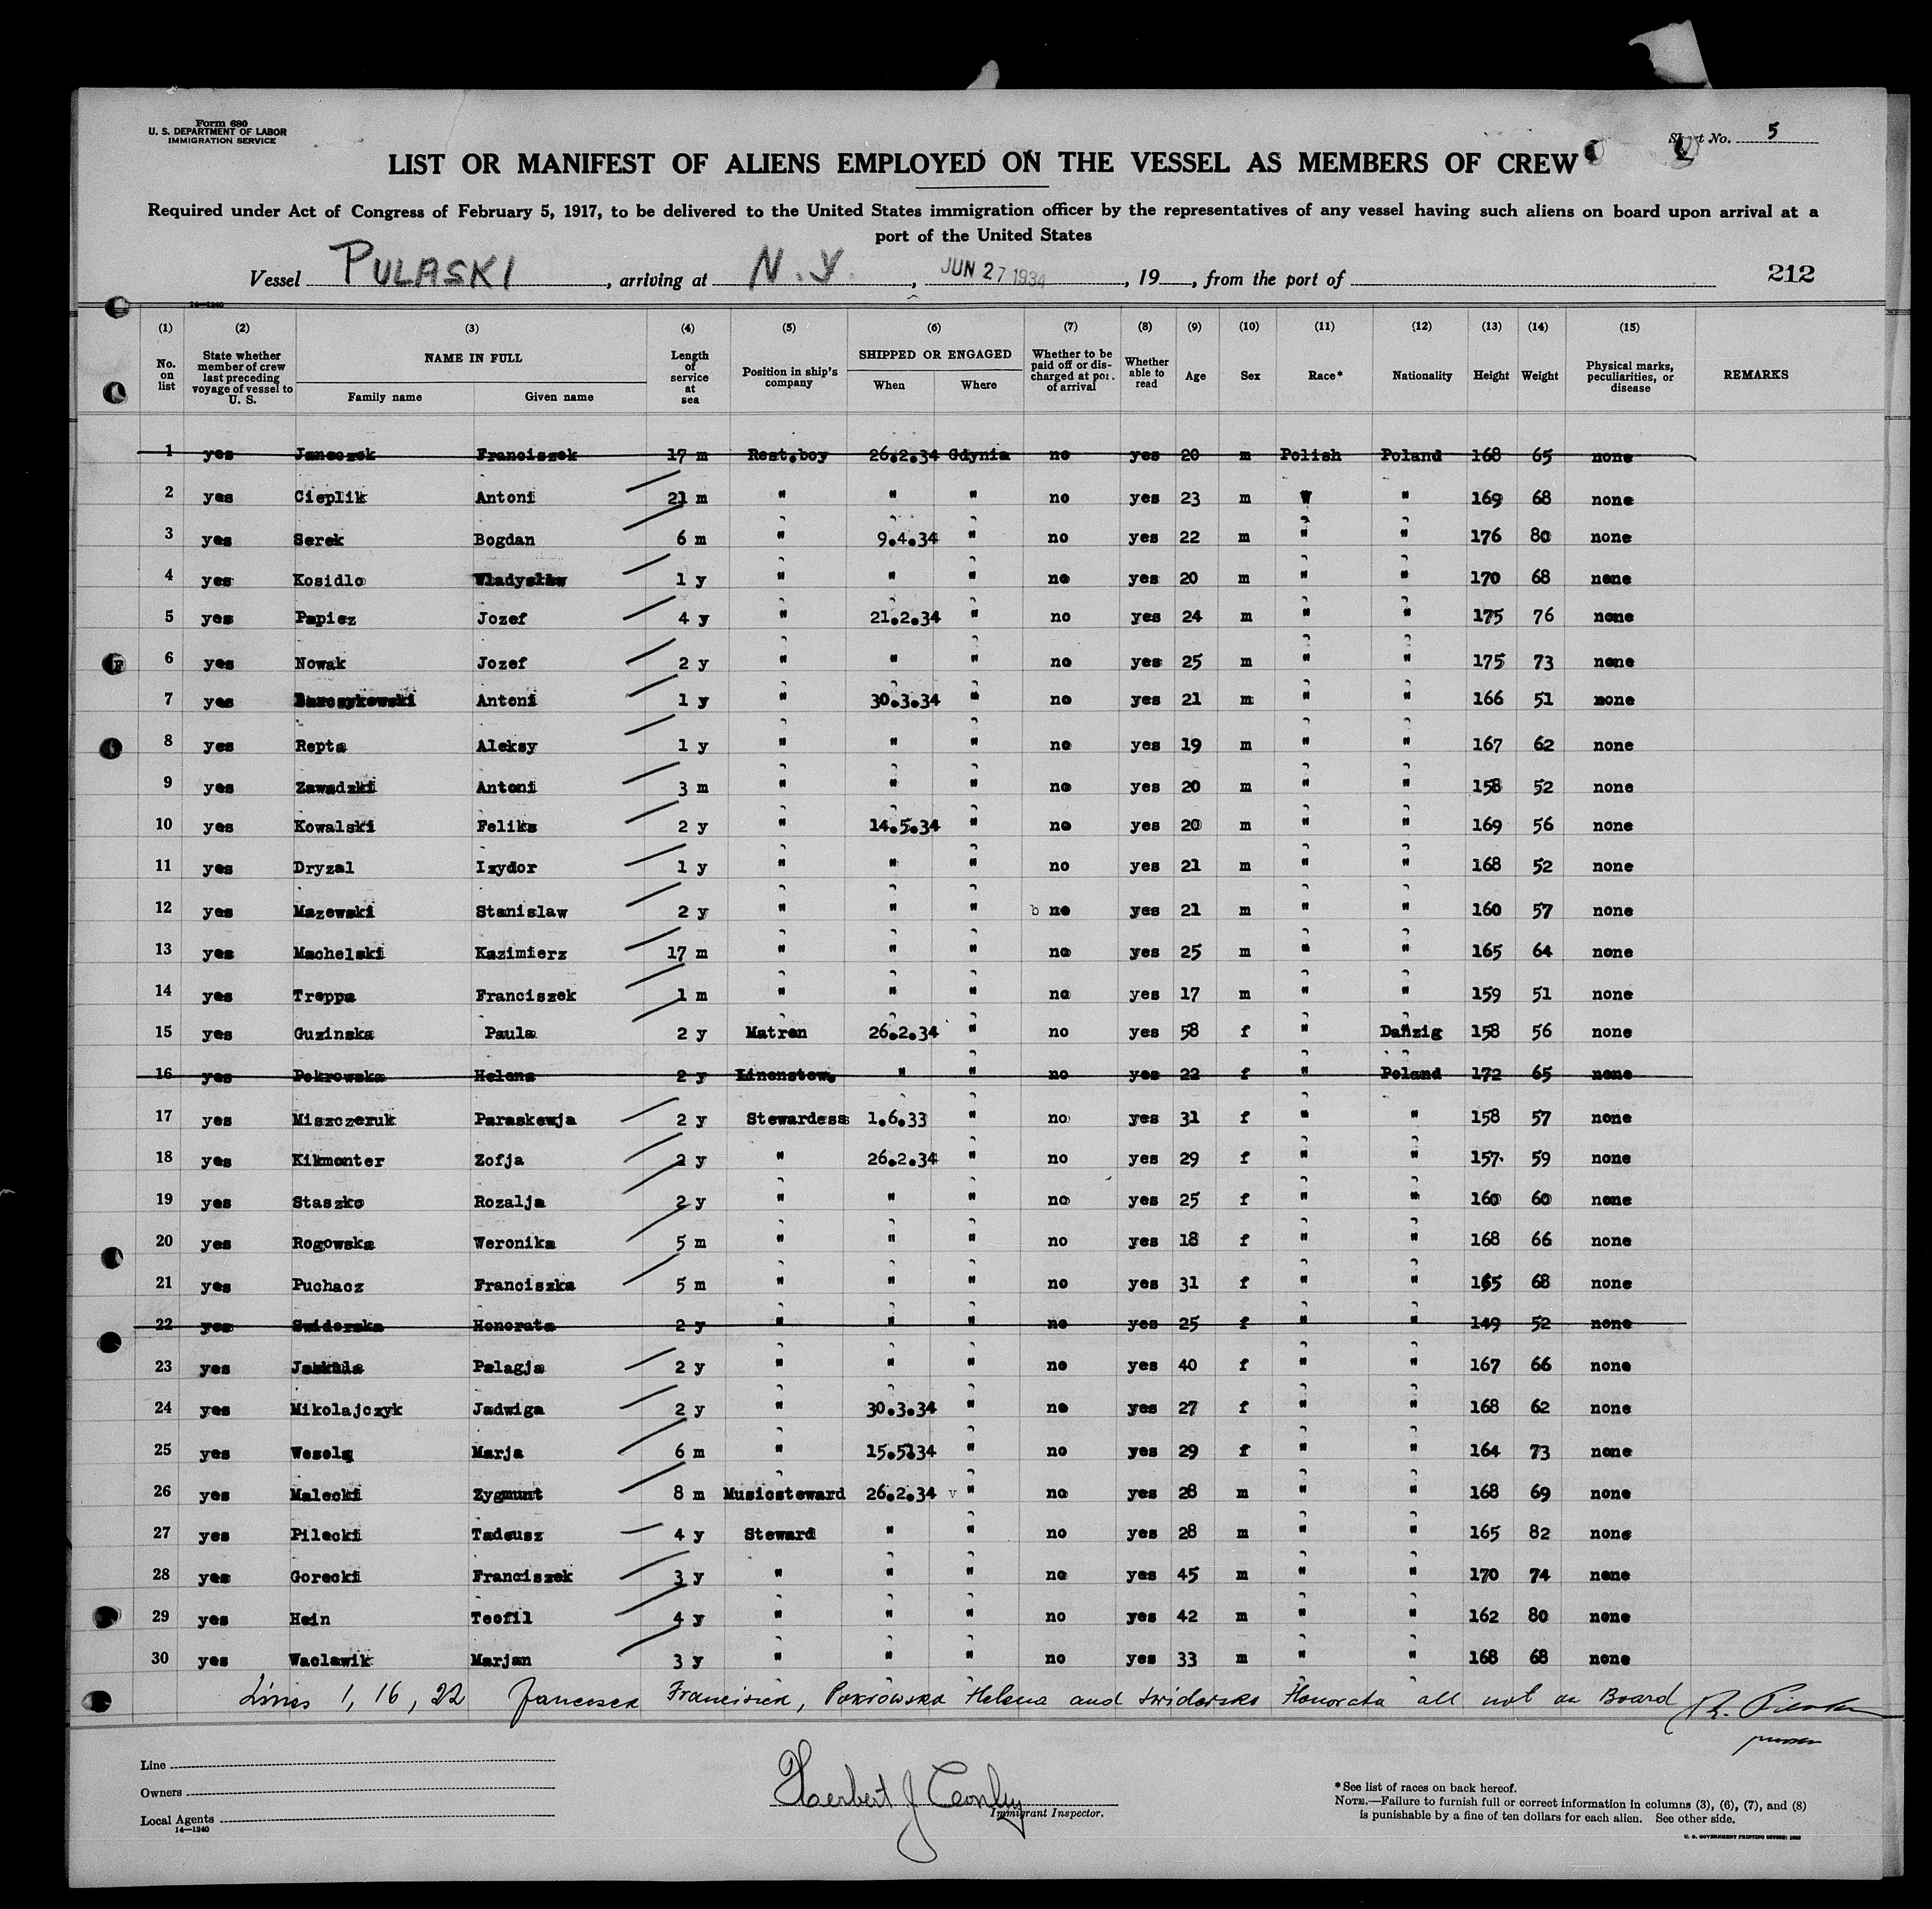 Form 680
U. S. DEPARTMENT OF LABOR
IMMIGRATION SERVICE
No. 5
LIST OR MANIFEST OF ALIENS EMPLOYED ON THE VESSEL AS MEMBERS OF CREW
Required under Act of Congress of February 5, 1917, to be delivered to the United States immigration officer by the representatives of any vessel having such aliens on board upon arrival at a
port of the United States
Vessel PULASKI, arriving at N.Y., JUN 27 1934, 19, from the port of 212
14—1240
(1) (2) (3) (4) (5) (6) (7) (8) (9) (10) (11) (12) (13) (14) (15)
No. on list
State whether member of crew last preceding voyage of vessel to U. S.
NAME IN FULL
Family name Given name
Length of service at sea
Position in ship's company
SHIPPED OR ENGAGED
When Where
Whether to be paid off or discharged at port of arrival
Whether able to read
Age Sex Race* Nationality Height Weight
Physical marks, peculiarities, or disease
REMARKS
1 yes Janeczek Franciszek 17 m Rest.boy 26.2.34 Gdynia no yes 20 m Polish Poland 168 65 none
2 yes Cieplik Antoni 21 m " " " no yes 23 m " " 169 68 none
3 yes Serek Bogdan 6 m " 9.4.34 " no yes 22 m " " 176 80 none
4 yes Kosidlo Wladyslaw 1 y " " " no yes 20 m " " 170 68 none
5 yes Papiez Jozef 4 y " 21.2.34 " no yes 24 m " " 175 76 none
6 yes Nowak Jozef 2 y " " " no yes 25 m " " 175 73 none
7 yes Barczykowski Antoni 1 y " 30.3.34 " no yes 21 m " " 166 51 none
8 yes Repta Aleksy 1 y " " " no yes 19 m " " 167 62 none
9 yes Zawadzki Antoni 3 m " " " no yes 20 m " " 158 52 none
10 yes Kowalski Feliks 2 y " 14.5.34 " no yes 20 m " " 169 56 none
11 yes Dryzal Izydor 1 y " " " no yes 21 m " " 168 52 none
12 yes Mazewski Stanislaw 2 y " " " b no yes 21 m " " 160 57 none
13 yes Machelski Kazimierz 17 m " " " no yes 25 m " " 165 64 none
14 yes Treppa Franciszek 1 m " " " no yes 17 m " " 159 51 none
15 yes Guzinska Paula 2 y Matron 26.2.34 " no yes 58 f " Danzig 158 56 none
16 yes Pokrowska Helena 2 y Linenstew. " " no yes 22 f " Poland 172 65 none
17 yes Miszczeruk Paraskewja 2 y Stewardess 1.6.33 " no yes 31 f " " 158 57 none
18 yes Kikmonter Zofja 2 y " 26.2.34 " no yes 29 f " " 157. 59 none
19 yes Staszko Rozalja 2 y " " " no yes 25 f " " 160 60 none
20 yes Rogowska Weronika 5 m " " " no yes 18 f " " 168 66 none
21 yes Puchacz Franciszka 5 m " " " no yes 31 f " " 165 68 none
22 yes Swiderska Honorata 2 y " " " no yes 25 f " " 149 52 none
23 yes Jaskula Pelagja 2 y " " " no yes 40 f " " 167 66 none
24 yes Mikolajczyk Jadwiga 2 y " 30.3.34 " no yes 27 f " " 168 62 none
25 yes Marja 6 m " 15.5.34 " no yes 29 f " " 164 73 none
26 yes Malecki Zygmunt 8 m Musicsteward 26.2.34 v " no yes 28 m " " 168 69 none
27 yes Pilecki Tadeusz 4 y Steward " " no yes 28 m " " 165 82 none
28 yes Gorecki Franciszek 3 y " " " no yes 45 m " " 170 74 none
29 yes Hein Teofil 4 y " " " no yes 42 m " " 162 80 none
30 yes Waclawik Marjan 3 y " " " no yes 33 m " " 168 68 none
Lines 1, 16, 22 Janeczek Franciszek, Pokrowska Helena and Swiderska Honorata all not on Board
purser
Line
Owners
Local Agents
14—1240
Herbert J
Immigrant Inspector.
*See list of races on back hereof.
NOTE.—Failure to furnish full or correct information in columns (3), (6), (7), and (8)
is punishable by a fine of ten dollars for each alien. See other side.
U. S. GOVERNMENT PRINTING OFFICE: